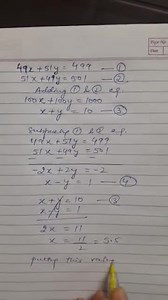 49x + 51y = 499 — ①
51x + 49y = 501 — ②
Adding ① & ② eq.
100x + 100y = 1000
x + y = 10 — ③
Subtracting ① & ② eq.
49x + 51y = 499
51x + 49y = 501
-2x + 2y = -2
x - y = 1 — ④
x + y = 10 — ③
x - y = 1
2x = 11
x = 11/2 = 5.5
putting this value